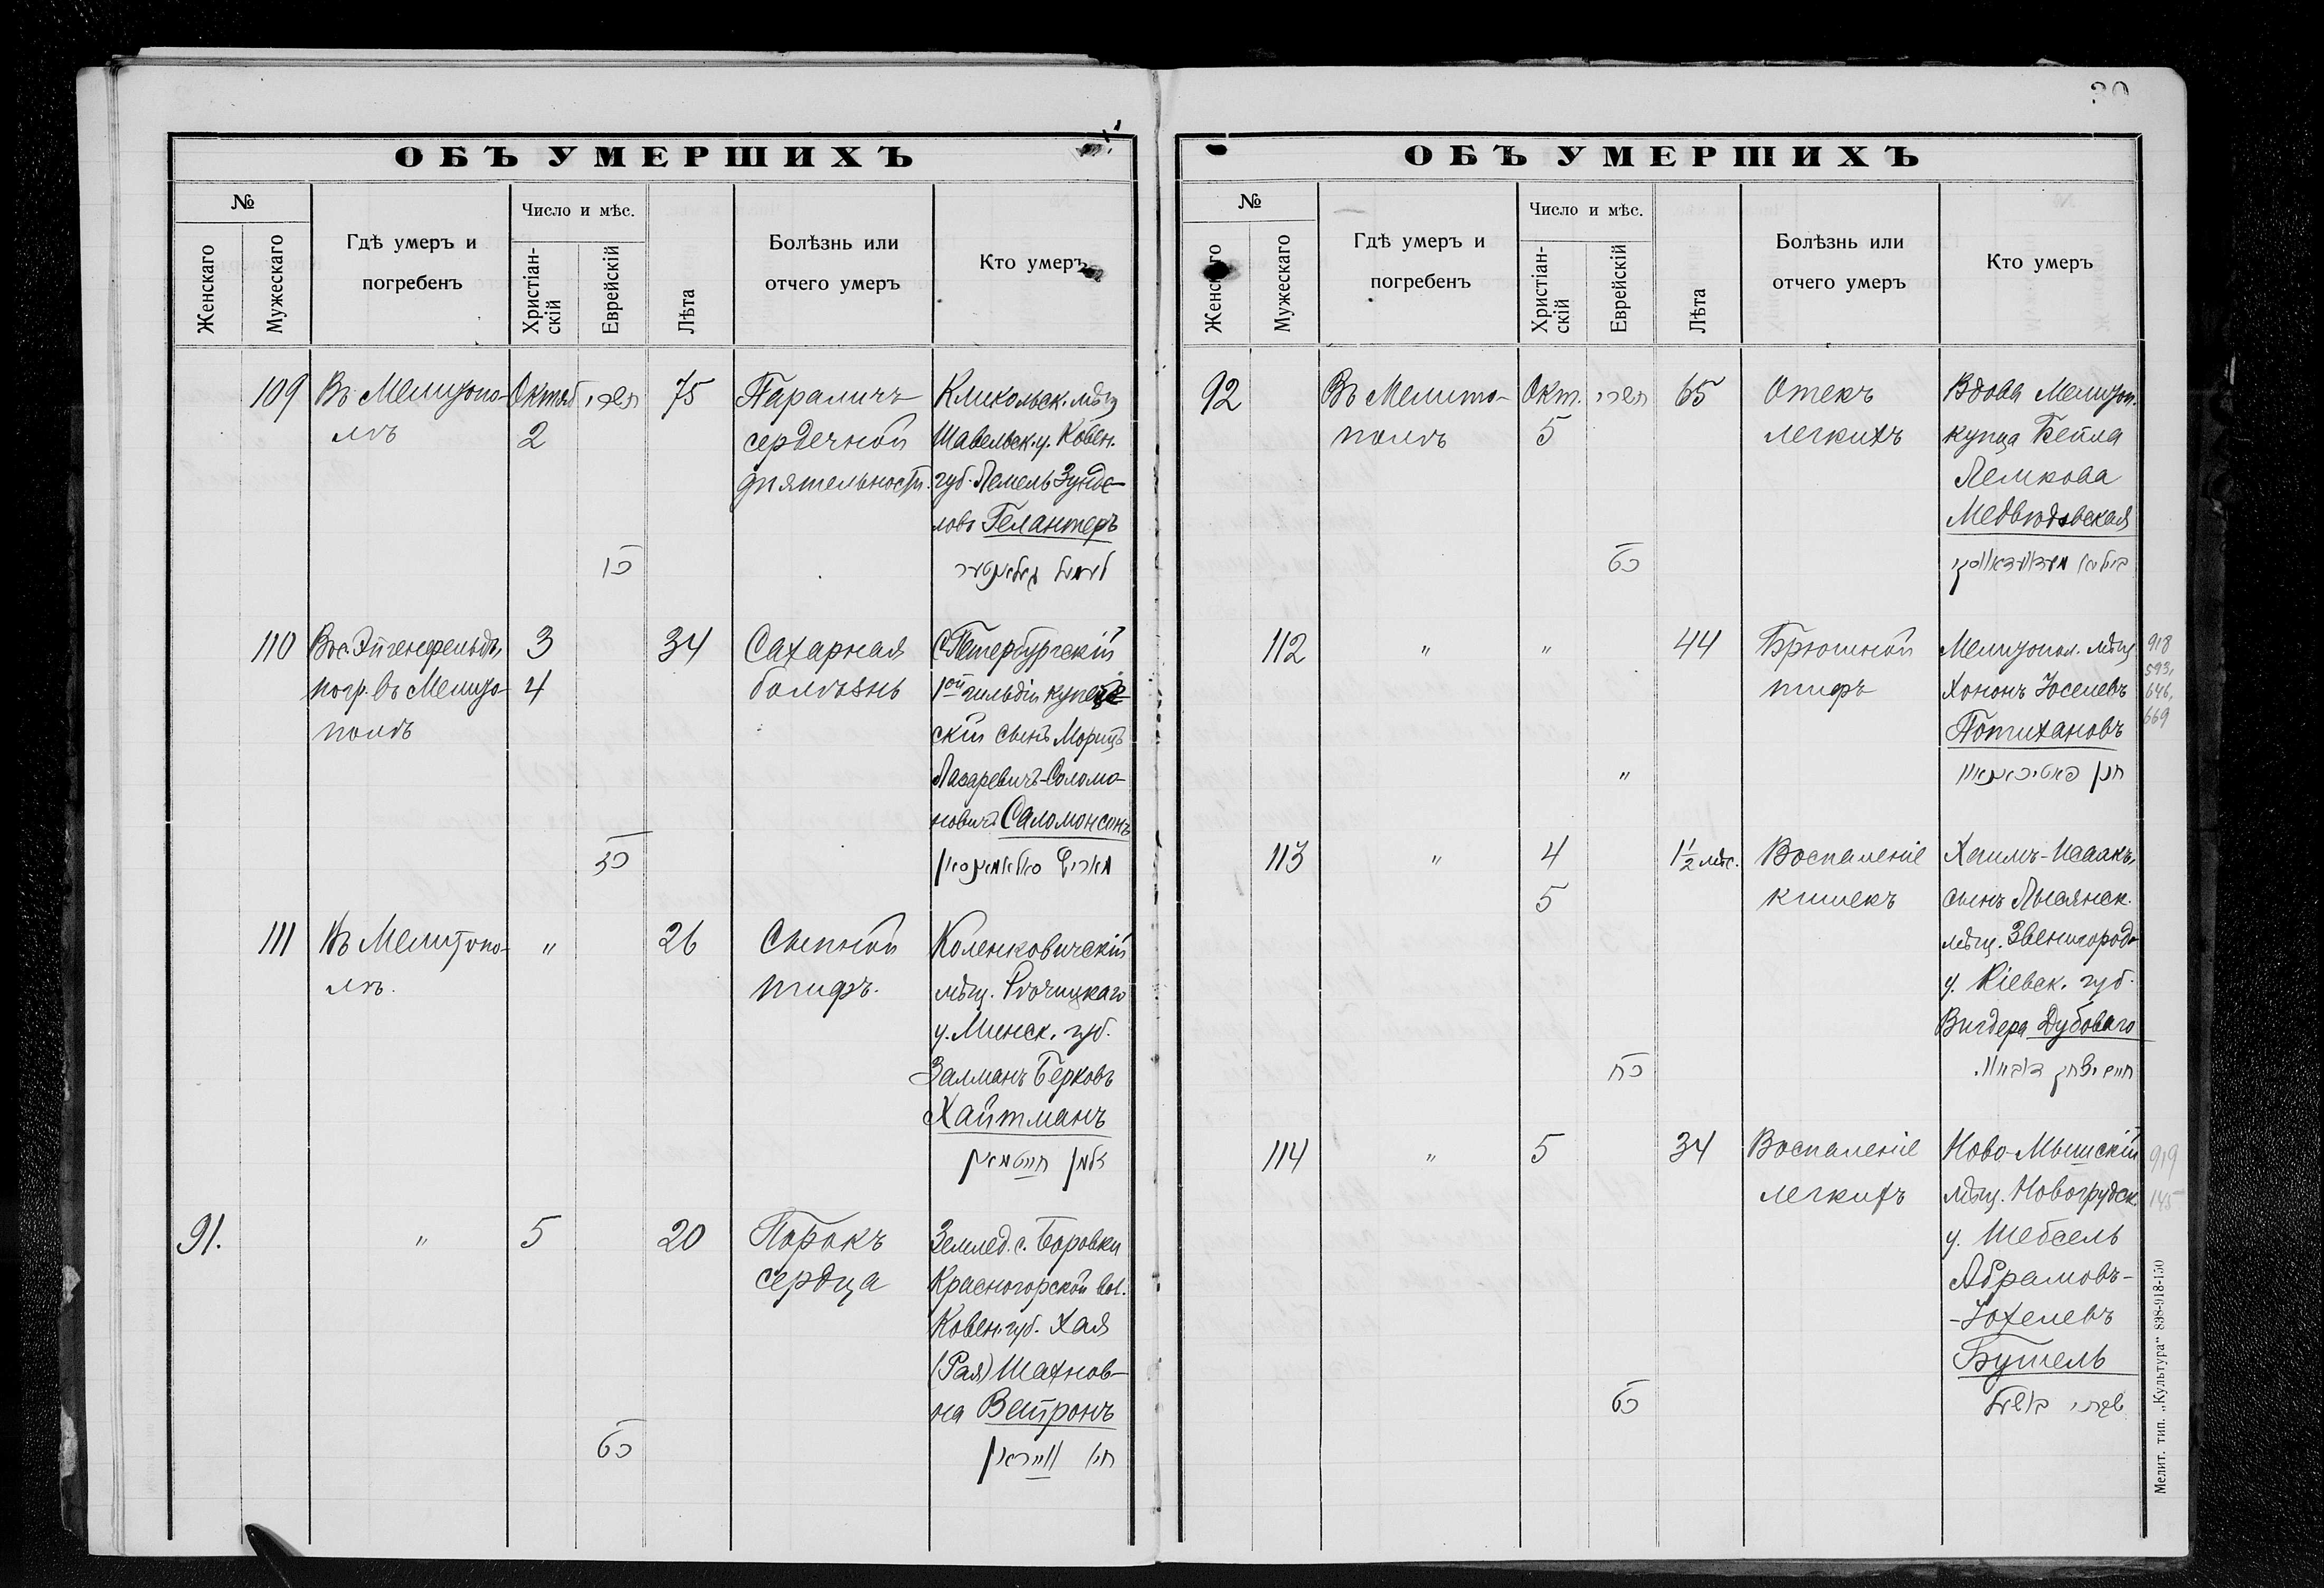 30
ОБЪ УМЕРШИХЪ
№
Женскаго
Мужескаго
Гдѣ умеръ и
погребенъ
Число и мѣс.
Христіан-
скій
Еврейскій
Лѣта
Болѣзнь или
отчего умеръ
Кто умеръ
109
Въ Мелитопо-
лѣ
Октяб
2
תשרי
כו
75
Параличъ
сердечной
дѣятельности.
Кликольск. мѣщ
Шавельск. у. Ковен.
губ. Лемель Зунде-
ловъ Гелантеръ
110
Въ с. Эйгенфельдъ,
погр. въ Мелито-
полѣ
3
4
34
Сахарная
болѣзнь
С.Петербургскій
1ой гильдіи купече
скій сынъ Морицъ
Лазаревичъ-Соломо-
новичъ Саломонсонъ
111
Въ Мелитопо-
лѣ.
"
26
Сыпной
тифъ.
Коленковичскій
мѣщ. Рѣчицкаго
у. Минск. губ.
Залманъ Берковъ
Хайтманъ
זלמן חייטמאן
91.
"
5
20
Порокъ
сердца
Землед. с. Боровки
Красногорской вол.
Ковен. губ. Хая
(Рая) Шахнов-
на Вейтронъ
ОБЪ УМЕРШИХЪ
№
Женскаго
Мужескаго
Гдѣ умеръ и
погребенъ
Число и мѣс.
Христіан-
скій
Еврейскій
Лѣта
Болѣзнь или
отчего умеръ
Кто умеръ
92
Въ Мелито-
полѣ
Окт.
5
תשרי
65
Отекъ
легкихъ
Вдова Мелитоп.
купца Бейла
Лемкова
Медвѣдовская
112
"
"
"
44
Брюшной
тифъ
Мелитопол. мѣщ
Хононъ Іоселевъ
Потихановъ
918
593,
646,
669
113
"
4
5
1½ мѣс.
Воспаленіе
кишекъ
Хаимъ-Исаакъ,
сынъ Лысянск.
мѣщ. Звенигород.
у. Кіевск. губ.
Вигдера Дубоваго
114
"
5
34
Воспаленіе
легкихъ
Ново-Мышскій
мѣщ. Новогрудск.
у. Шебсель
Абрамовъ-
-Іохелевъ
Бушель
919
145
Мелит. тип. „Культура" 898-918-150